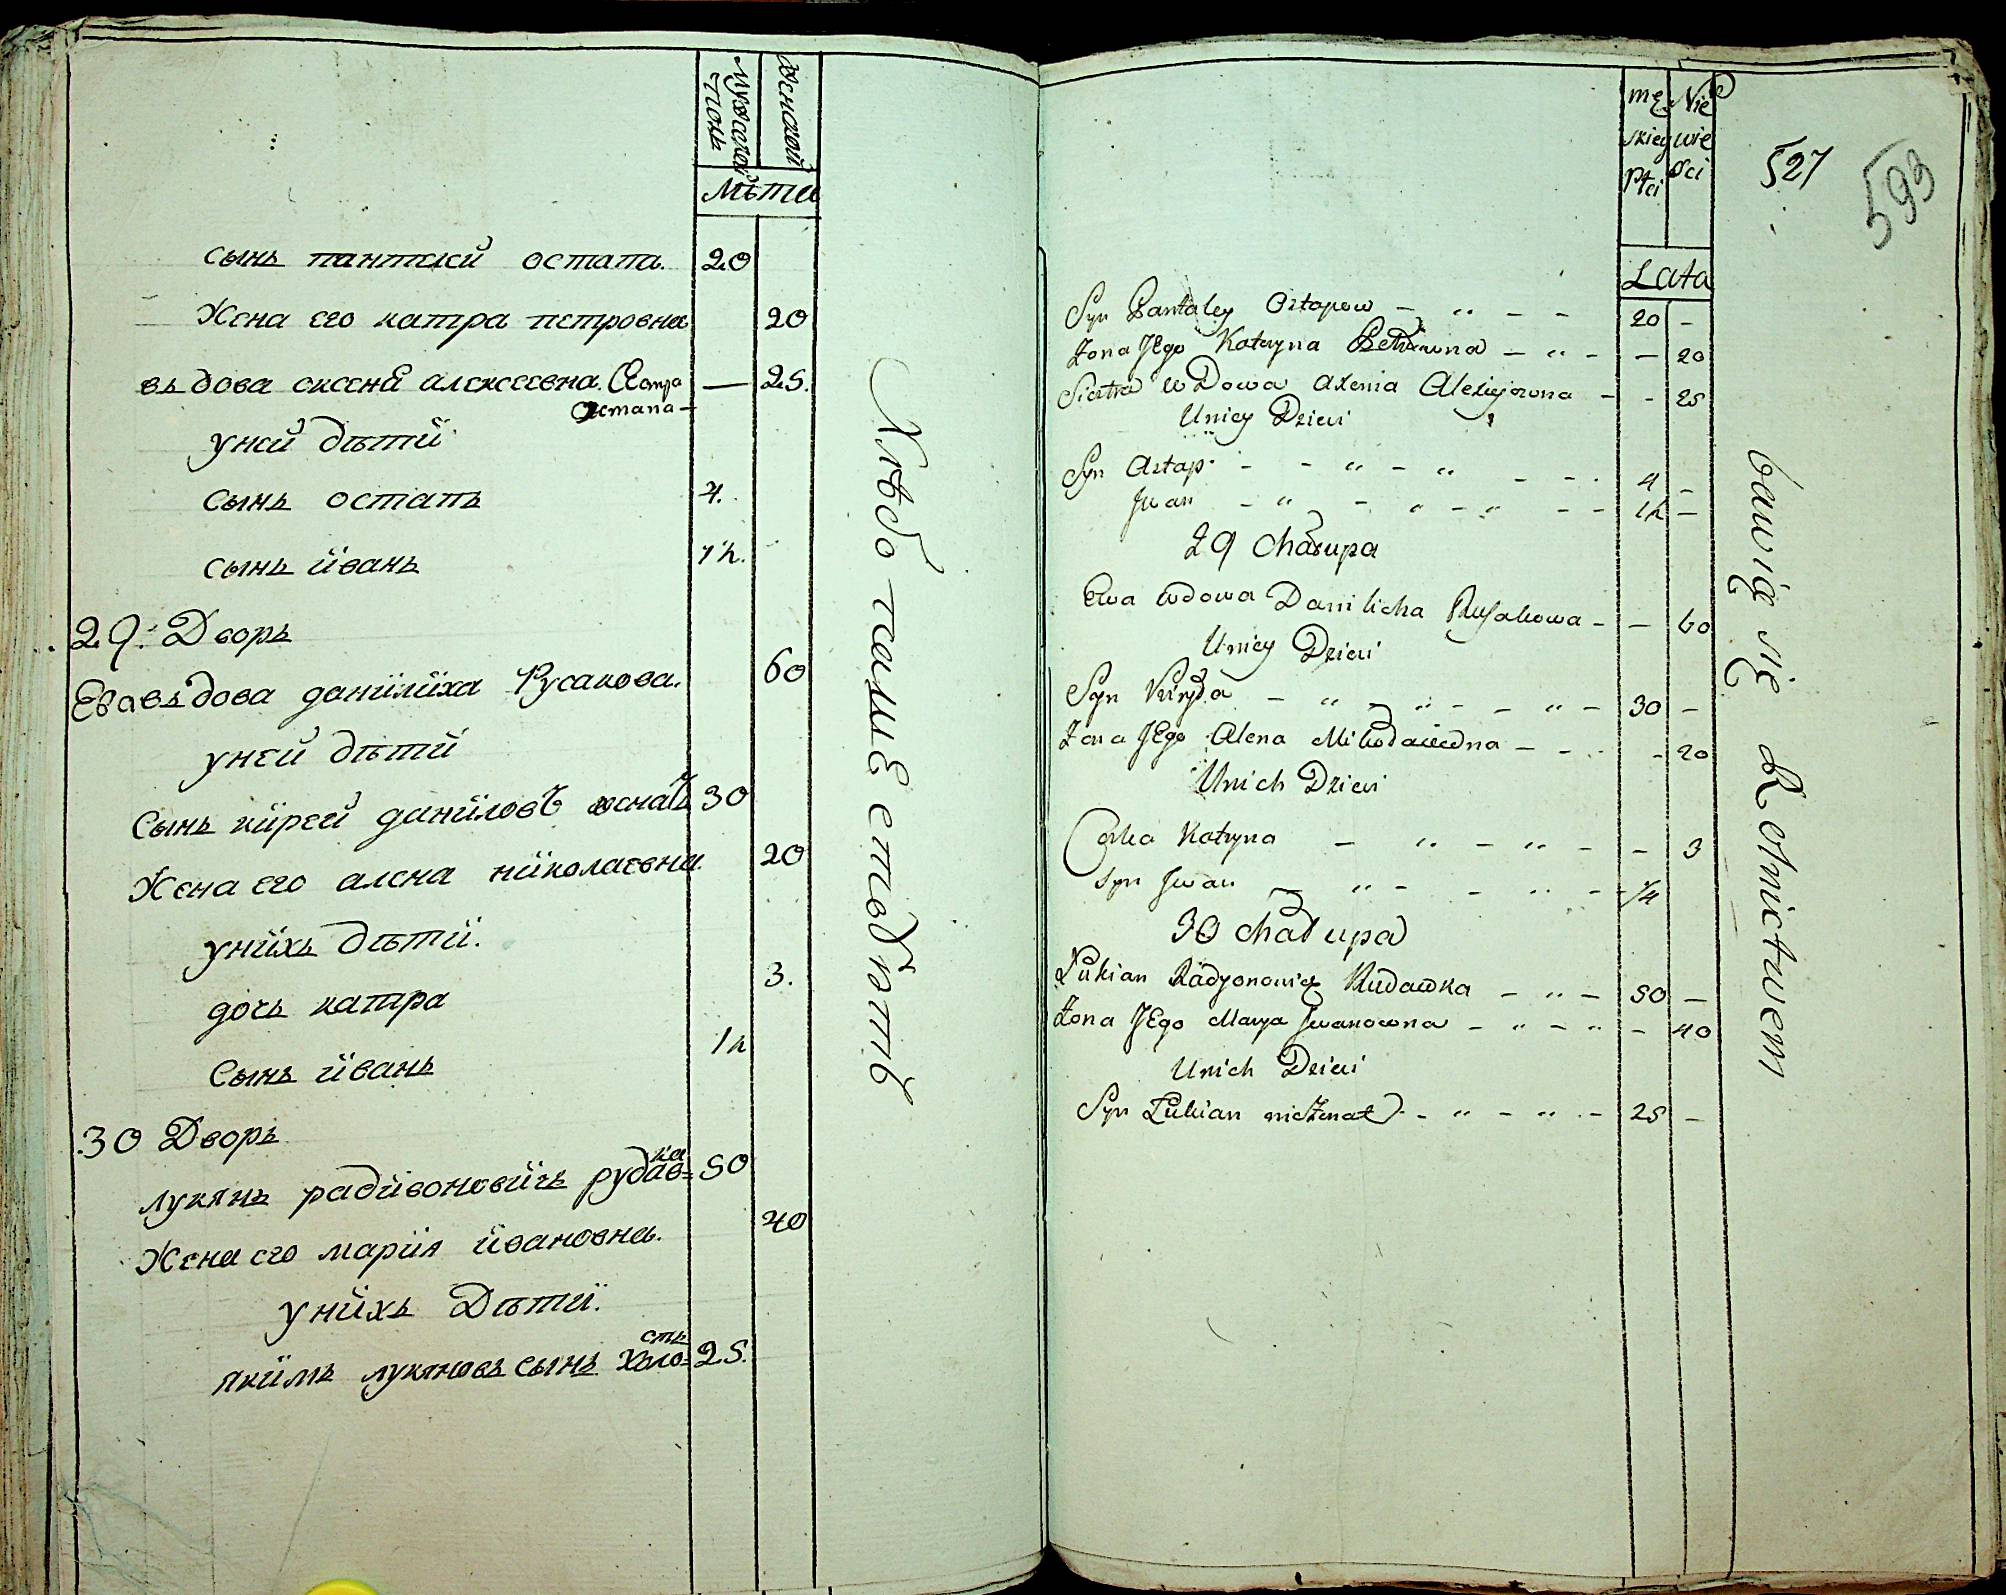 мужеской
женской
полъ
Лѣта
сынъ пантилей остапа. 20
Жена его катра петровна 20
въдова оксена алексеевна. Сестра — 25.
Остапа —
уней дѣти
сынъ остапъ 4.
сынъ иванъ 1½.
29: Дворъ
Ева въдова данилиха Русакова. 60
уней дѣти
Сынъ кирей даниловъ 30
Жена его алена николаевна. 20
унихъ дѣти.
дочь катра 3.
Сынъ иванъ ¼
30 Дворъ
лукянъ радивоновичъ рудавка 50
Жена его мария ивановна. 40
унихъ Дѣти.
якимъ лукяновъ сынъ холостъ 25.
Хлѣбопашествомъ
męskiey Płci
Niewieści
527
599
Lata
Syn Pantaley Ostapow 20 —
Żona JEgo Katryna Petrowna — 20
Siestra wDowa Axenia Alexiejowna - 25
Uniey Dzieci
Syn Astap 4 —
Jwan 1½ —
29 Chałupa
Ewa wdowa Danilicha Rusakowa — 60
Uniey Dzieci
Syn Kiryła 30 —
Żona JEgo Alena Mikołaiewna - 20
Unich Dzieci
Corka Katryna — 3
Syn Jwan ¼
30 Chałupa
Łukian Radyonowicz Rudawka 50 —
Żona JEgo Marya Jwanowna — 40
Unich Dzieci
Syn Łukian nieżonat 25 —
bawią się Rolnictwem